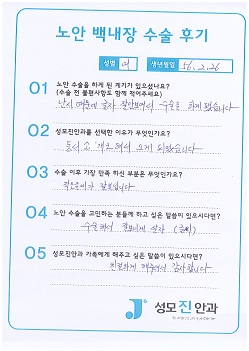 노안 백내장 수술 후기
성별 여 생년월일 56.2.26
01 노안 수술을 하게 된 계기가 있으셨나요?
(수술 전 불편사항도 함께 적어주세요)
난시 때문에 글자 잘안보여서 수술을 하게 됐습니다
02 성모진안과를 선택한 이유가 무엇인가요?
동서 소개로 해서 오게 되었습니다
03 수술 이후 가장 만족 하신 부분은 무엇인가요?
작은글씨가 잘보입니다
04 노안 수술을 고민하는 분들께 하고 싶은 말씀이 있으시다면?
수술해서 잘보이게 살자
05 성모진안과 가족에게 해주고 싶은 말씀이 있으시다면?
친절하게 해주셔서 감사합니다
성모진안과